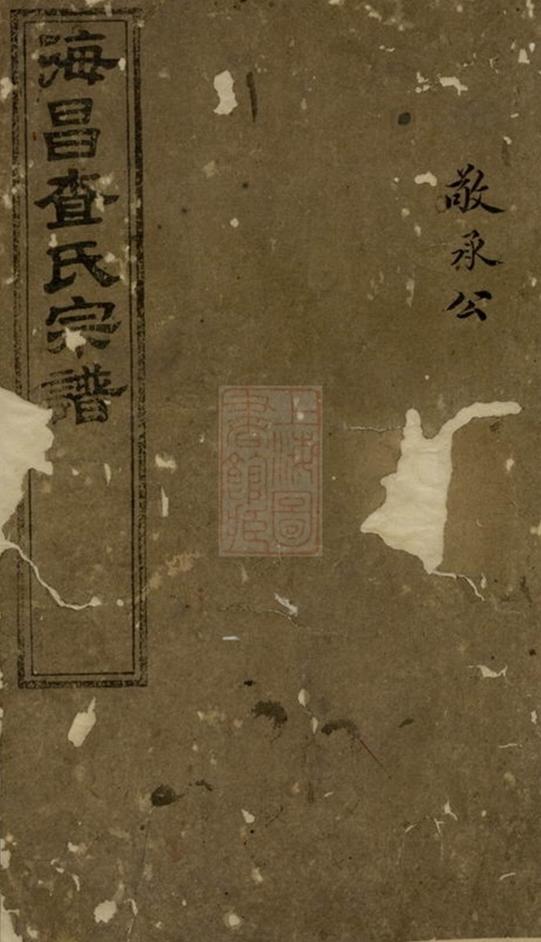 敬承公
海昌查氏宗譜
上海圖
書館藏